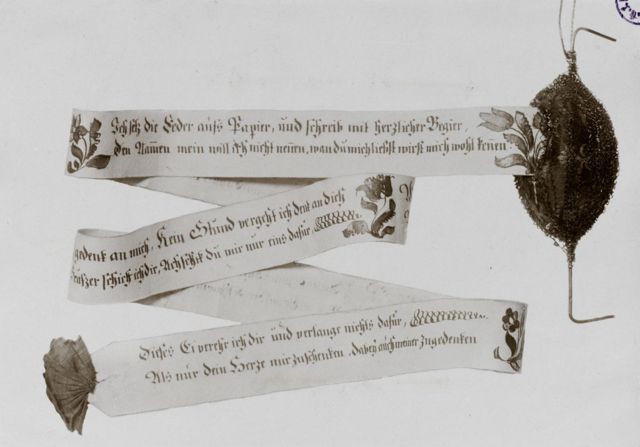 Ich setz die Feder aufs Papier, und schreib mit herzlicher Begier,
den Namen mein will ich nicht nennen, wan du mich liebst wirst mich wohl kenen
gedenk an mich. Kein Stund vergeht ich denk an dich
seufzer schick ich dir, Ach schick du mir nur eins dafür,
Dieses Ei verehr ich dir und verlange nichts dafür,
Als nur dein Herze mir zuschenken, dabey auch meiner zugedenken